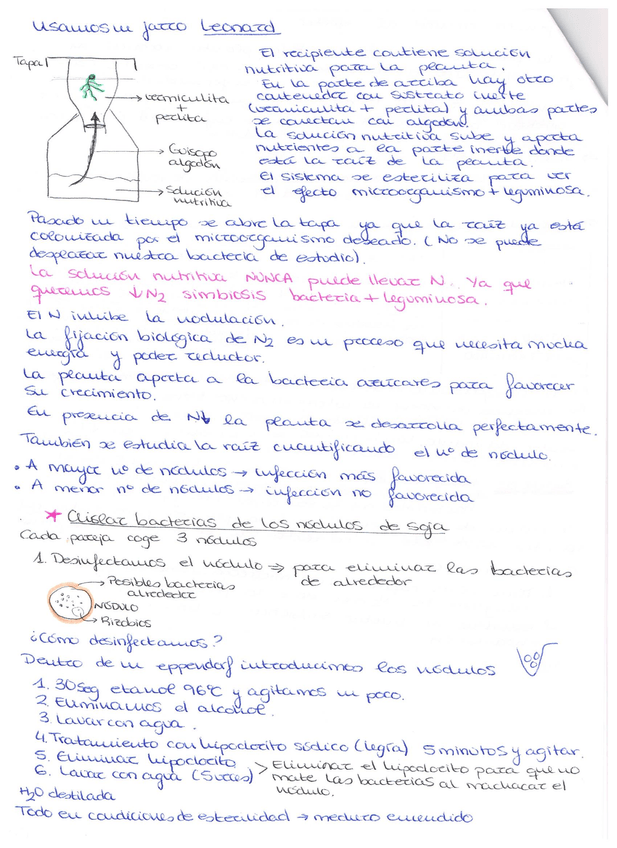 Usamos un jarro Leonard
Tapa
vermiculita
+
perlita
Guiscpo
algodón
Solución
nutritiva
El recipiente contiene solución
nutritiva para la planta.
En la parte de arriba hay otro
contenedor con sustrato inerte
(vermiculita + perlita) y ambas partes
se conectan con algodón.
La solución nutritiva sube y aporta
nutrientes a la parte inerte donde
está la raíz de la planta.
El sistema se esteriliza para ver
el efecto microorganismo + leguminosa.
Pasado un tiempo se abre la tapa ya que la raíz ya está
colonizada por el microorganismo deseado. (No se puede
desplazar nuestra bacteria de estudio).
La solución nutritiva NUNCA puede llevar N. Ya que
queremos ↓N2 simbiosis bacteria + leguminosa.
El N inhibe la nodulación.
La fijación biológica de N2 es un proceso que necesita mucha
energía y poder reductor.
La planta aporta a la bacteria azúcares para favorecer
su crecimiento.
En presencia de N↓ la planta se desarrolla perfectamente.
También se estudia la raíz cuantificando el nº de nódulo.
• A mayor nº de nódulos → infección más favorecida
• A menor nº de nódulos → infección no favorecida
* Aislar bacterias de los nódulos de soja
Cada pareja coge 3 nódulos
1. Desinfectamos el nódulo ⇒ para eliminar las bacterias
de alrededor
Posibles bacterias
alrededor
NÓDULO
Rizobios
¿Cómo desinfectamos?
Dentro de un eppendorf introducimos los nódulos
1. 30 seg etanol 96ºC y agitamos un poco.
2. Eliminamos el alcohol.
3. Lavar con agua.
4. Tratamiento con hipoclorito sódico (legía) 5 minutos y agitar.
5. Eliminar hipoclorito
6. Lavar con agua (5 veces)
> Eliminar el hipoclorito para que no
mate las bacterias al machacar el
nódulo.
H2O destilada
Todo en condiciones de esterilidad → mechero encendido